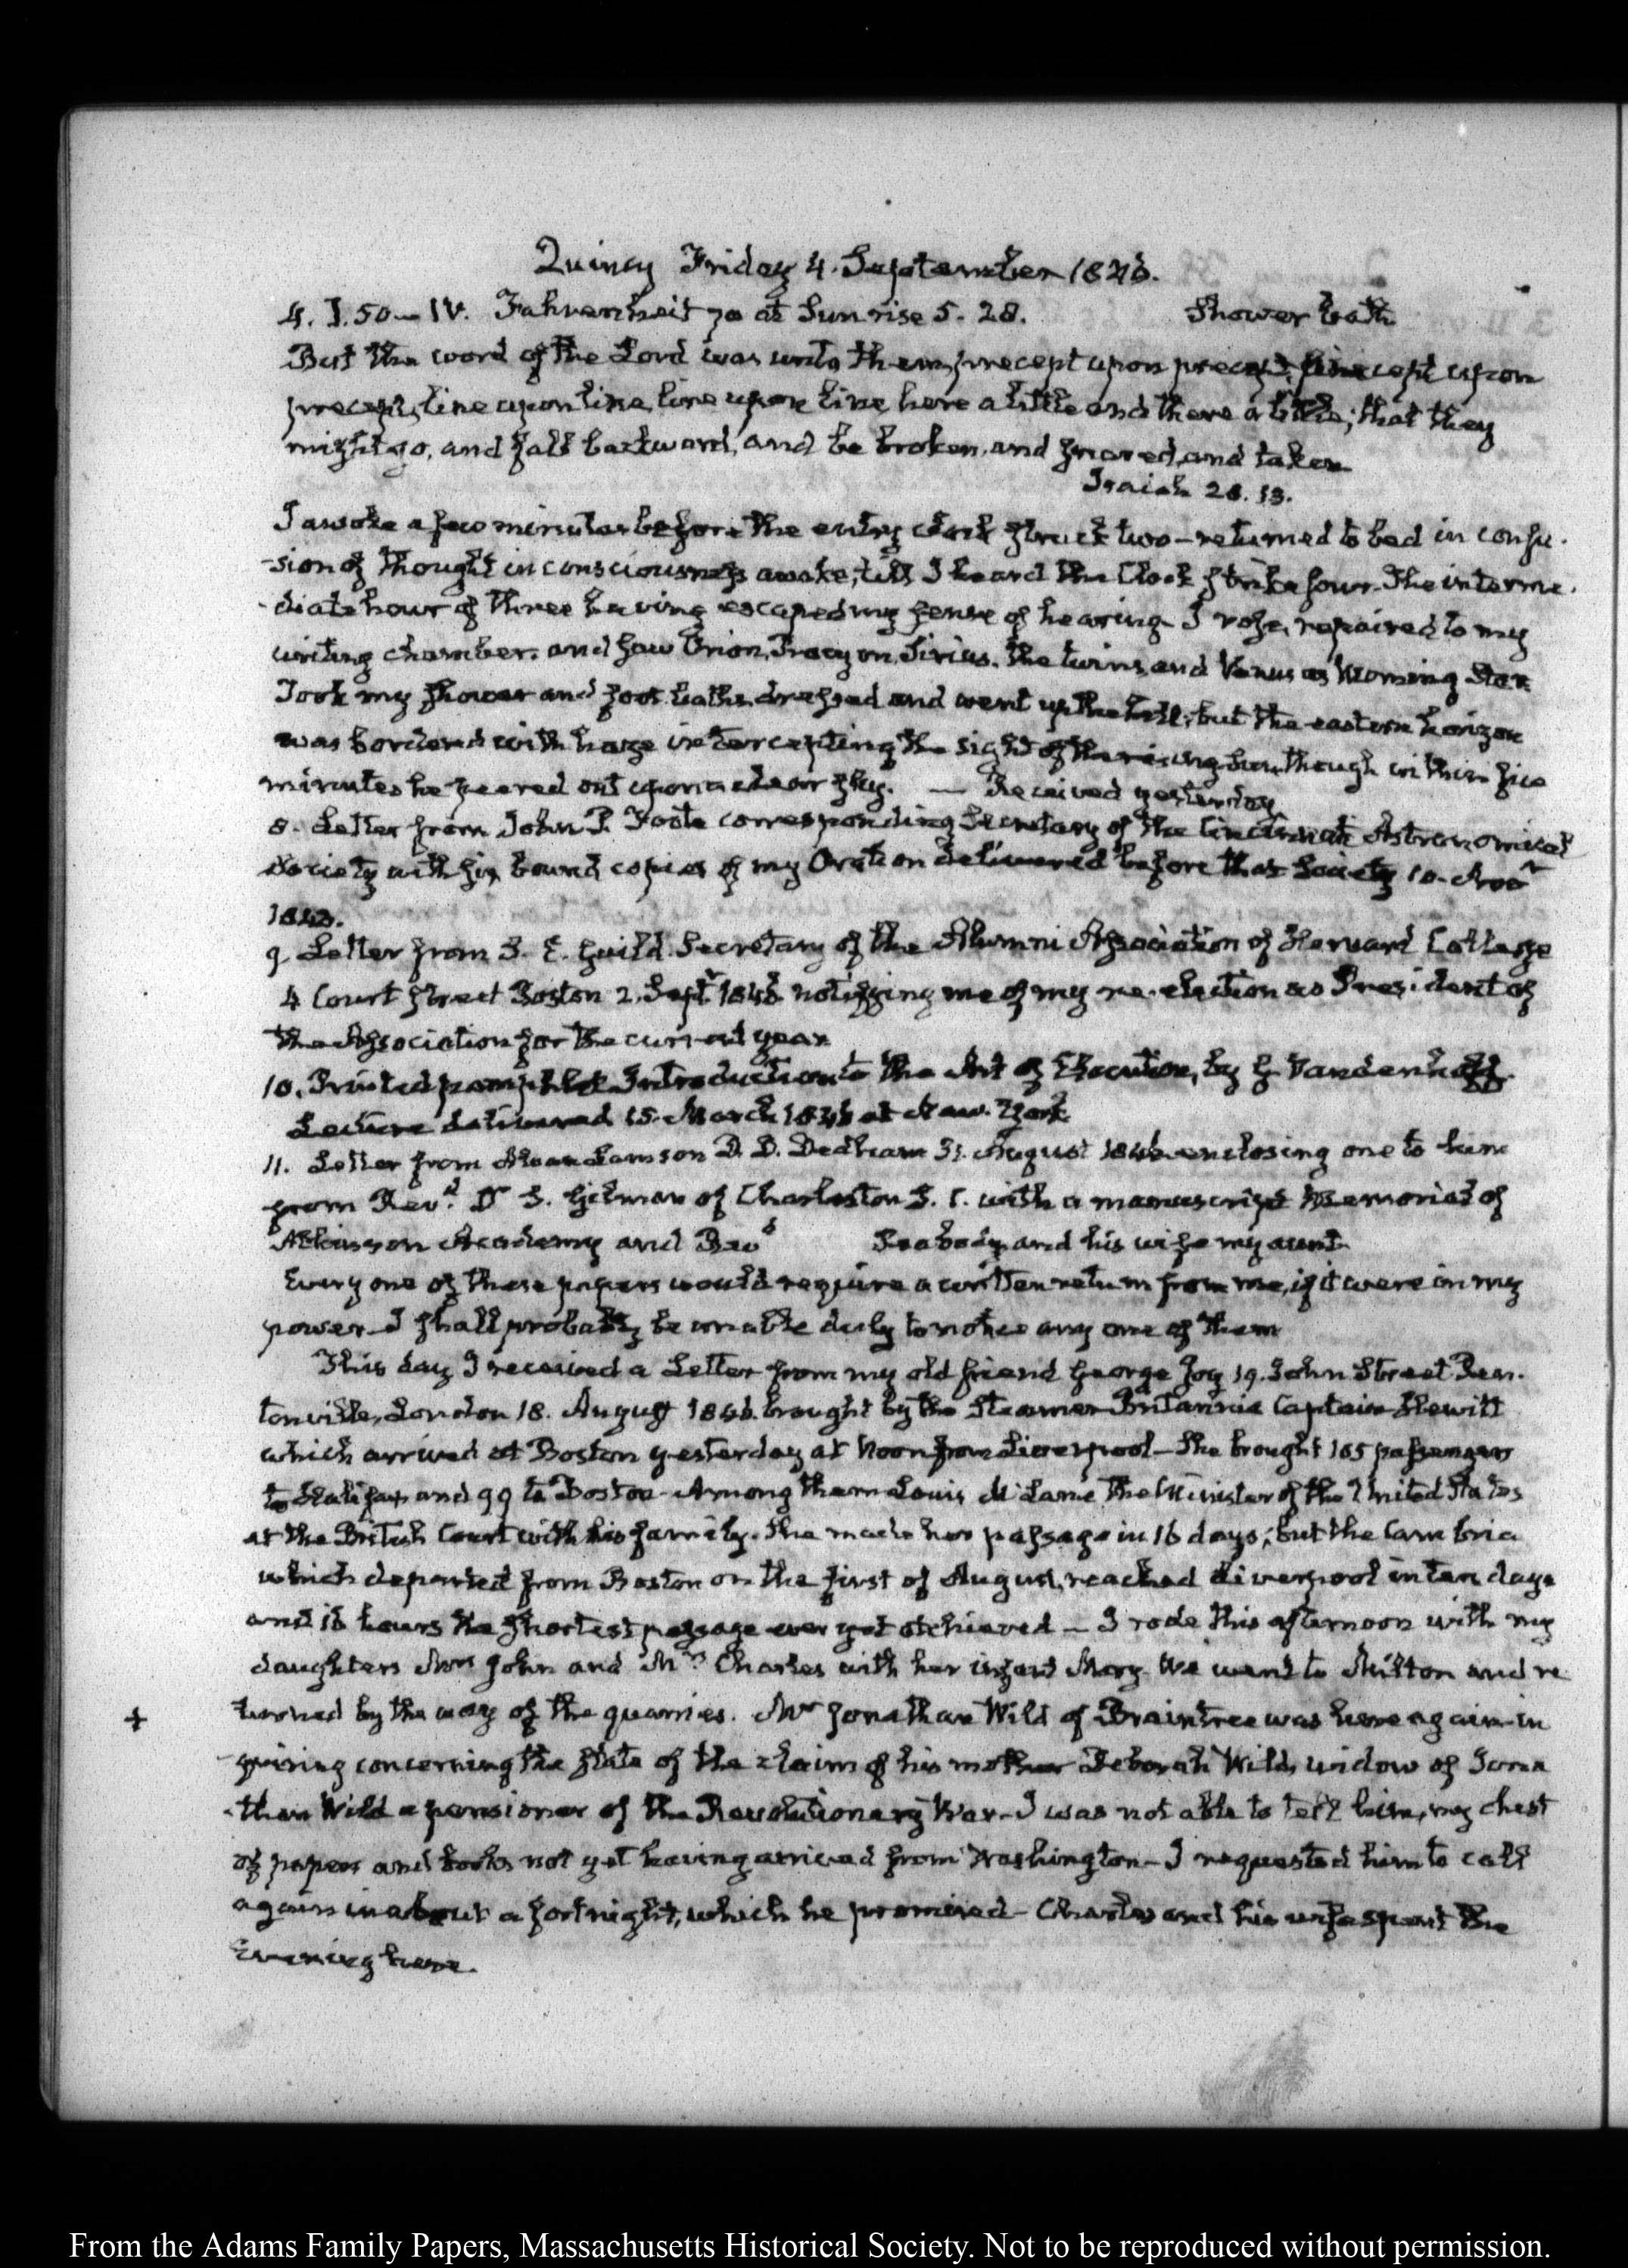 Quincy Friday 4. September 1846.
4. I.50 — IV. Fahrenheit 70 at Sunrise 5. 28. Shower bath
But the word of the Lord was unto them, precept upon precept, precept upon
precept, line upon line, line upon line here a little and there a little; that they
might go, and fall backward, and be broken, and snared, and taken
Isaiah 28. 13.
I awoke a few minutes before the entry clock struck two — returned to bed in confu-
-sion of thought in consciousness awake, till I heard the Clock strike four. The interme-
-diate hour of three having escaped my sense of hearing. I rose, repaired to my
writing chamber. and saw Orion, Procyon, Sirius. the twins, and Venus as Morning Star
Took my shower and foot baths. dressed and went up the hill; but the eastern horizon
was bordered with haze intercepting the sight of the rising Sun, though within five
minutes he peered out upon a clear sky. — Received yesterday
8. Letter from John P. Foote corresponding Secretary of the Cincinnati Astronomical
Society with six bound copies of my Oration delivered before that Society 10. Novr
1843.
9 Letter from S. E. Guild Secretary of the Alumni Association of Harvard College
4 Court Street Boston 2. Septr 1846 notifying me of my re-election as President of
the Association for the current year
10. Printed pamphlet Introduction to the Art of Elocution, by G Vandenhoff.
Lecture delivered 15. March 1846 at New-York
11. Letter from Alvan Lamson D. D. Dedham 31. August 1846 enclosing one to him
from Revd. Dr S. Gilman of Charleston S. C. with a manuscript Memorial of
Atkinson Academy and Revd Peabody and his wife my aunt
Every one of these papers would require a written return from me, if it were in my
power — I shall probably be unable duly to notice any one of them
This day I received a Letter from my old friend George Joy 19. John Street Pen-
tonville, London 18. August 1846. brought by the Steamer Britannia Captain Hewitt
which arrived at Boston yesterday at Noon from Liverpool — She brought 105 passengers
to Halifax and 99 to Boston — Among them Louis McLane the Minister of the United States
at the British Court with his family. She made her passage in 16 days; but the Cambria
which departed from Boston on the first of August, reached Liverpool in ten days
and 16 hours the shortest passage ever yet atchieved — I rode this afternoon with my
daughters Mrs John and Mrs Charles with her infant Mary. We went to Milton and re
turned by the way of the quarries. Mr Jonathan Wild of Braintree was here again in
+
-quiring concerning the state of the claim of his mother Deborah Wild, widow of Jona
-than Wild a pensioner of the Revolutionary War — I was not able to tell him, my chest
of papers and books not yet having arrived from Washington — I requested him to call
again in about a fortnight, which he promised — Charles and his wife spent the
Evening here.
From the Adams Family Papers, Massachusetts Historical Society. Not to be reproduced without permission.